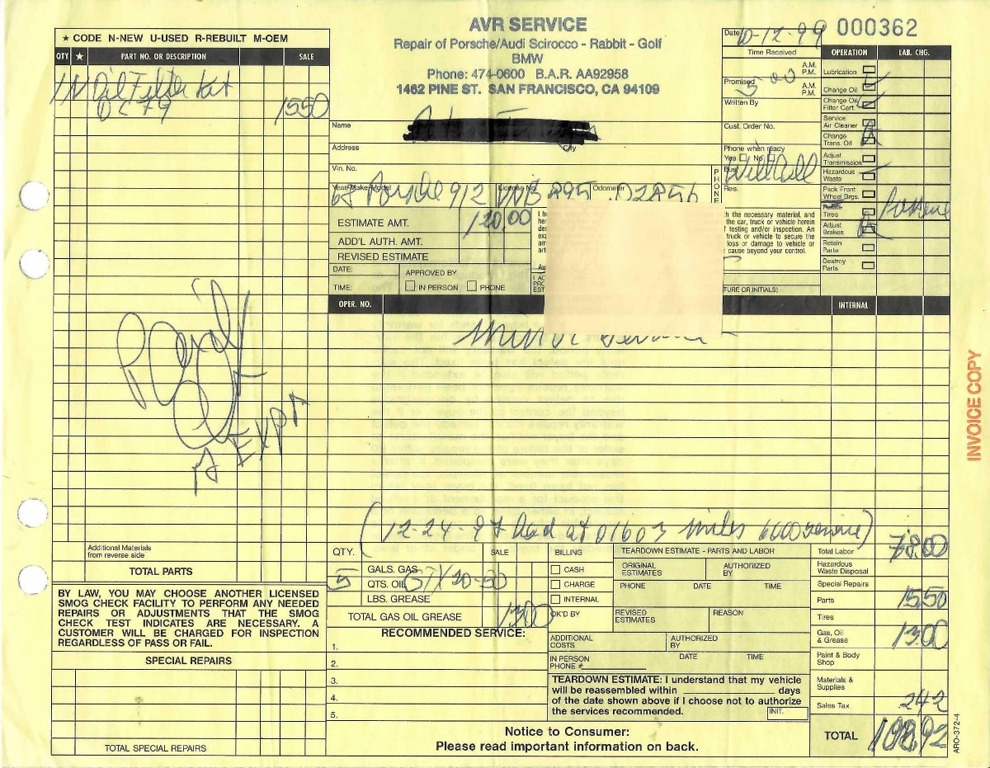 ★ CODE N-NEW U-USED R-REBUILT M-OEM
QTY ★ PART NO. OR DESCRIPTION SALE
1 N Oil Filter Kit
1550
AVR SERVICE
Repair of Porsche/Audi Scirocco - Rabbit - Golf
BMW
Phone: 474-0600 B.A.R. AA92958
1462 PINE ST. SAN FRANCISCO, CA 94109
Date 10-12-99 000362
Time Received
A.M.
P.M.
Promised 5 00 A.M.
P.M.
Written By
Cust. Order No.
Phone when ready
Yes No
Will Call
PHONE
Res.
OPERATION LAB. CHG.
Lubrication
Change Oil
Change Oil
Filter Cart.
Service
Air Cleaner
Change
Trans. Oil
Adjust
Transmission
Hazardous
Waste
Pack Front
Wheel Brgs.
Tires
Adjust
Brakes
Retain
Parts
Destroy
Parts
Name
Address City
Vin. No.
Year-Make-Model License No. Odometer
68 Porsche 912 VNB 895 02856
ESTIMATE AMT. 120.00
ADD'L AUTH. AMT.
REVISED ESTIMATE
DATE:
TIME:
APPROVED BY
IN PERSON PHONE
the necessary material, and
the car, truck or vehicle herein
testing and/or inspection. An
truck or vehicle to secure the
loss or damage to vehicle or
cause beyond your control.
TURE OR INITIALS)
OPER. NO. INTERNAL
Minor
Paid
INVOICE COPY
(12-24-97 had at 01603 miles 6000 service)
Additional Materials
from reverse side
TOTAL PARTS
BY LAW, YOU MAY CHOOSE ANOTHER LICENSED
SMOG CHECK FACILITY TO PERFORM ANY NEEDED
REPAIRS OR ADJUSTMENTS THAT THE SMOG
CHECK TEST INDICATES ARE NECESSARY. A
CUSTOMER WILL BE CHARGED FOR INSPECTION
REGARDLESS OF PASS OR FAIL.
SPECIAL REPAIRS
TOTAL SPECIAL REPAIRS
QTY. SALE
GALS. GAS
5 QTS. OIL GTX 20-50
LBS. GREASE
TOTAL GAS OIL GREASE 1300
RECOMMENDED SERVICE:
1.
2.
3.
4.
5.
BILLING
CASH
CHARGE
INTERNAL
OK'D BY
TEARDOWN ESTIMATE - PARTS AND LABOR
ORIGINAL
ESTIMATES
AUTHORIZED
BY
PHONE DATE TIME
REVISED
ESTIMATES
REASON
ADDITIONAL
COSTS
AUTHORIZED
BY
IN PERSON
PHONE #
DATE TIME
TEARDOWN ESTIMATE: I understand that my vehicle
will be reassembled within days
of the date shown above if I choose not to authorize
the services recommended.
INIT.
Notice to Consumer:
Please read important information on back.
Total Labor 78.00
Hazardous
Waste Disposal
Special Repairs
Parts 15.50
Tires
Gas, Oil
& Grease 13.00
Paint & Body
Shop
Materials &
Supplies
Sales Tax 2.42
TOTAL 108.92
ARO-372-4